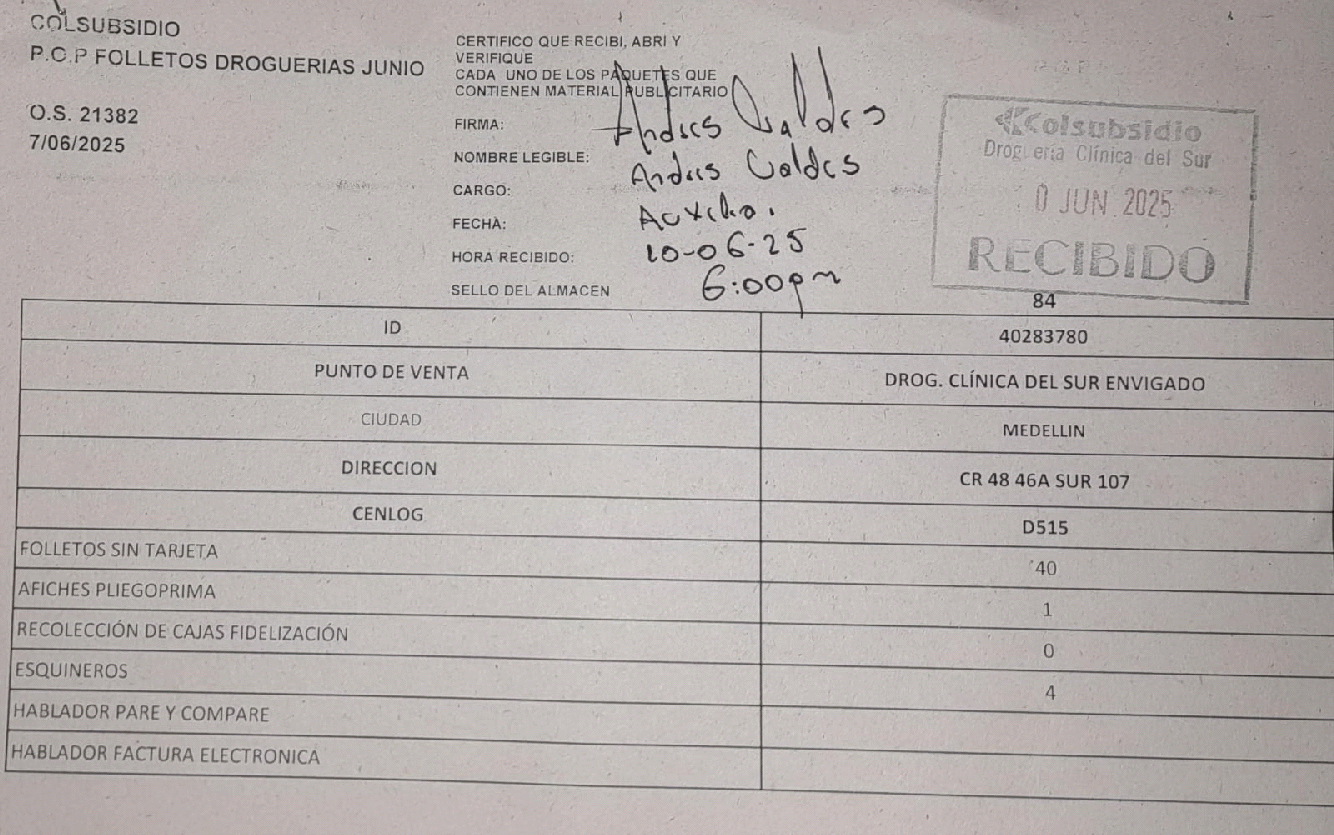 COLSUBSIDIO
P.O.P FOLLETOS DROGUERIAS JUNIO
O.S. 21382
7/06/2025
CERTIFICO QUE RECIBI, ABRI Y
VERIFIQUE
CADA UNO DE LOS PAQUETES QUE
CONTIENEN MATERIAL PUBLICITARIO
FIRMA: Andres Valdes
NOMBRE LEGIBLE: Andres Valdes
CARGO: Auxiliar.
FECHA: 10-06-25
HORA RECIBIDO: 6:00pm
SELLO DEL ALMACEN
Colsubsidio
Droguería Clínica del Sur
0 JUN 2025
RECIBIDO
84
ID 40283780
PUNTO DE VENTA DROG. CLÍNICA DEL SUR ENVIGADO
CIUDAD MEDELLIN
DIRECCION CR 48 46A SUR 107
CENLOG D515
FOLLETOS SIN TARJETA 40
AFICHES PLIEGOPRIMA 1
RECOLECCIÓN DE CAJAS FIDELIZACIÓN 0
ESQUINEROS 4
HABLADOR PARE Y COMPARE
HABLADOR FACTURA ELECTRONICA